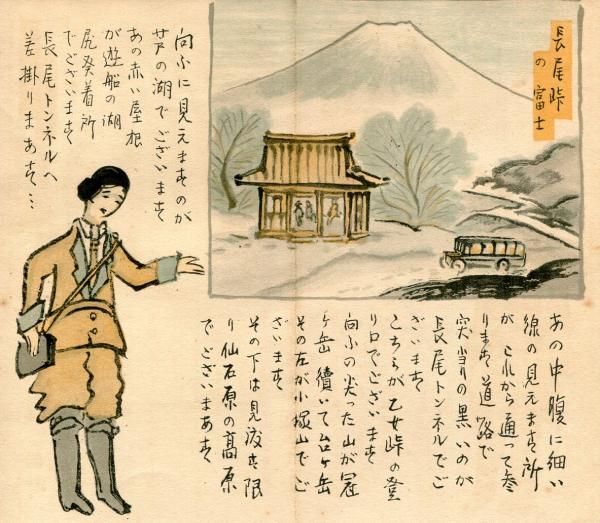 長尾峠
の富士
あの中腹に細い
線の見えます所
が これから通って参
ります道路で
突当りの黒いのが
長尾トンネルでご
ざいます
こちらが乙女峠の登
り口でございます
向ふの尖った山が冠
ヶ岳 續いて台ヶ岳
その左が小塚山でご
ざいます
その下は見渡す限
り仙石原の高原
でございまあす
向ふに見えますのが
芦の湖でございます
あの赤い屋根
が遊船の湖
尻発着所
でございます
長尾トンネルへ
差掛りまあす…